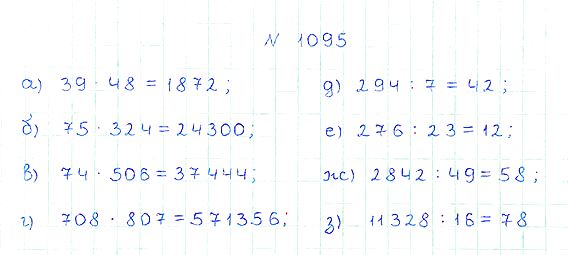 N 1095
а) 39 · 48 = 1872;
б) 75 · 324 = 24300;
в) 74 · 506 = 37444;
г) 708 · 807 = 571356;
д) 294 : 7 = 42;
е) 276 : 23 = 12;
ж) 2842 : 49 = 58;
з) 11328 : 16 = 78